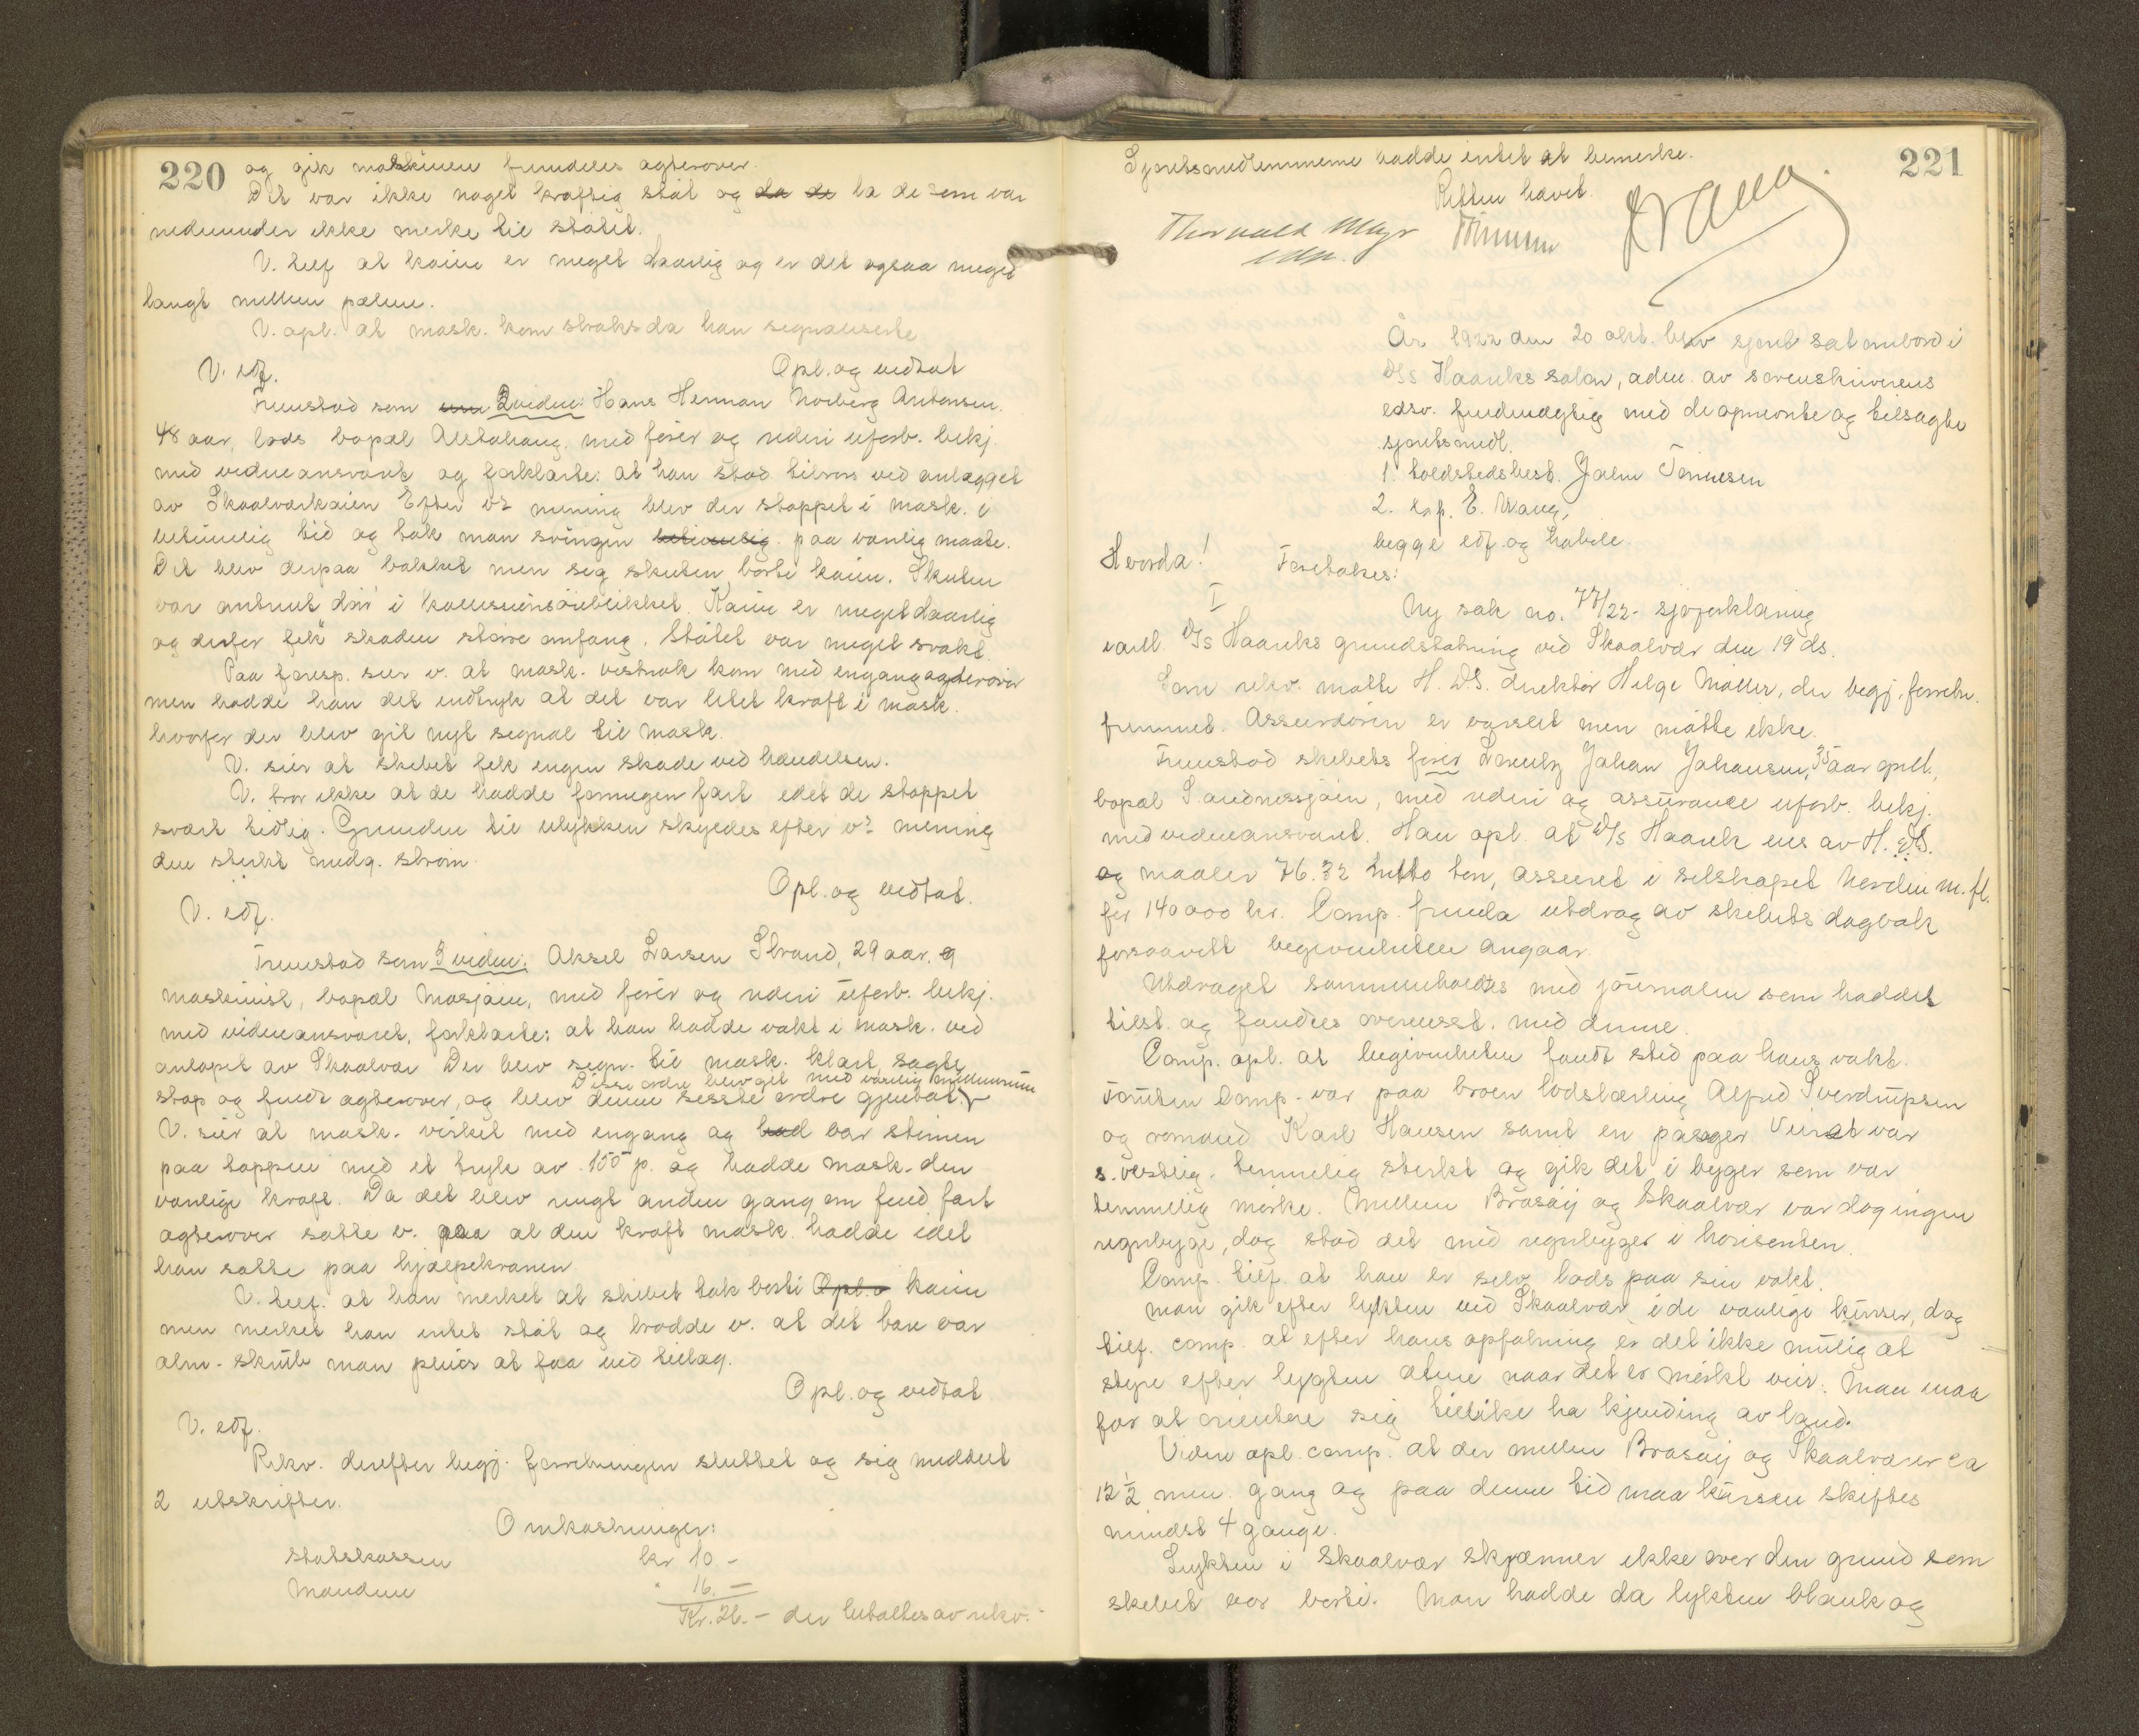 220
og gik maskinen fremdeles agterover.
Det var ikke noget kraftig støt og da de la de som var
nedenunder ikke merke til støtet.
V. tilf at kaien er meget daarlig og er det ogsaa meget
langt mellem pælene.
V. opl. at mask. kom straks da han signaliserte
Opl. og vedtat
V. edf.
Fremstod som 2 vidne: Hans Herman Norberg Antonsen.
48 aar, lods bopæl Alstahaug, med fører og rederi uforb. bekj.
med vidneansvaret og forklarte: at han stod tilrors ved anlægget
av Skaalværkaien Efter vs mening blev der stoppet i mask. i
betimelig tid og tok man svingen betimelig paa vanlig maate.
Det blev derpaa bakket men seg skuten borti kaien. Skuten
var omtrent død i kollisionsøieblikket. Kaien er meget daarlig
og derfor fik skaden større omfang. Støtet var meget svakt.
Paa foresp. sier v. at mask. vistnok kom med engang agterover
men hadde han det indtryk at det var litet kraft i mask.
hvorfor der blev git nyt signal til mask.
V. sier at skibet fik ingen skade ved hændelsen.
V. tror ikke at de hadde formegen fart idet de stoppet
svært tidlig. Grunden til ulykken skyldes efter vs mening
den sterke medg. strøm.
Opl. og vedtat.
V. edf.
Fremstod som 3 vidne: Aksel Larsen Strand, 29 aar, 9
maskinist, bopæl Mosjøen, med fører og rederi uforb. bekj.
med vidneansvaret, forklarte: at han hadde vakt i mask. ved
anløpet av Skaalvær Der blev sign. til mask. klart, sagte
Disse ordre blev git med vanlig mellemrum
stop og fuldt agterover, og blev denne sesste ordre gjentat.
V. sier at mask. virket med engang og had var stimen
paa toppen med et tryk av 155 p. og hadde mask. den
vanlige kraft. Da det blev ringt anden gang om fuld fart
agterover satte v. paa al den kraft mask. hadde idet
han satte paa hjælpekranen.
V. tilf. at han merket at skibet tok borti Opl. o kaien
men merket han intet støt og trodde v. at det bare var
alm. skub man pleier at faa ved tillæg.
Opl. og vedtat
V. edf.
Rekv. derefter begj. forretningen sluttet og sig meddelt
2 utskrifter.
Omkostninger:
Statskassen kr 10 -
Mændene " 16. -
Kr. 26. - der betaltes av rekv. -
221
Sjøretsmedlemmerne hadde intet at bemerke.
Retten hævet.
Thorvald Mayr
edsv.
År 1922 den 20 okt. blev sjøret sat ombord i
D/S Haariks salon, adm. av sorenskriverens
edsv. fuldmægtig med de opnevnte og tilsagte
sjøretsmedl.
1. toldstedsbest. Jalm Tønnesen
2. kap. E. Krane,
begge edf. og habile.
Hvorda! Foretokes:
I
Ny sak no. 77/22 - sjøforklaring
i anl. D/S Haariks grundstøtning ved Skaalvær den 19 ds.
Som rekv. møtte H. D.S. direktør Helge Møller, der begj. forretn.
fremmet. Assurandøren er varslet men møtte ikke.
Fremstod skibets fører Lorentz Johan Johansen, 35 aar gml.,
bopæl Sandnessjøen, med rederi og assurance uforb. bekj.
med vidneansvaret. Han opl. at D/S Haarik eies av H. D.S.
og maaler 76.32 netto ton, assurert i selskapet Norden m. fl.
for 140 000 kr. Comp. fremla utdrag av skibets dagbok
forsaavidt begivenheten angaar.
Utdraget sammenholdtes med journalen som haddes
tilst. og fandtes overensst. med denne.
Comp. opl. at begivenheten fandt sted paa hans vakt.
Foruten Comp. var paa broen lodslærling Alfred Sverdrupsen
og rormand Karl Hansen samt en passager Veiret var
s. vestlig. temmelig sterkt og gik det i byger som var
temmelig mørke. Mellem Brasøy og Skaalvær var dog ingen
regnbyge, dog stod det med regnbyger i horisonten.
Comp. tilf. at han er selv lods paa sin vakt.
Man gik efter lykten ved Skaalvær i de vanlige kurser, dog
tilf. comp. at efter hans opfatning er det ikke mulig at
styre efter lygten alene naar det er mørkt veir. Man maa
for at orientere sig tillike ha kjending av land.
Viden opl. comp. at der mellem Brasøy og Skaalvær er ca
12 1/2 min. gang og paa denne tid maa kursen skiftes
mindst 4 gange.
Lykten i Skaalvær skjærmer ikke over den grund som
skibet var borti. Man hadde da lykten blank og